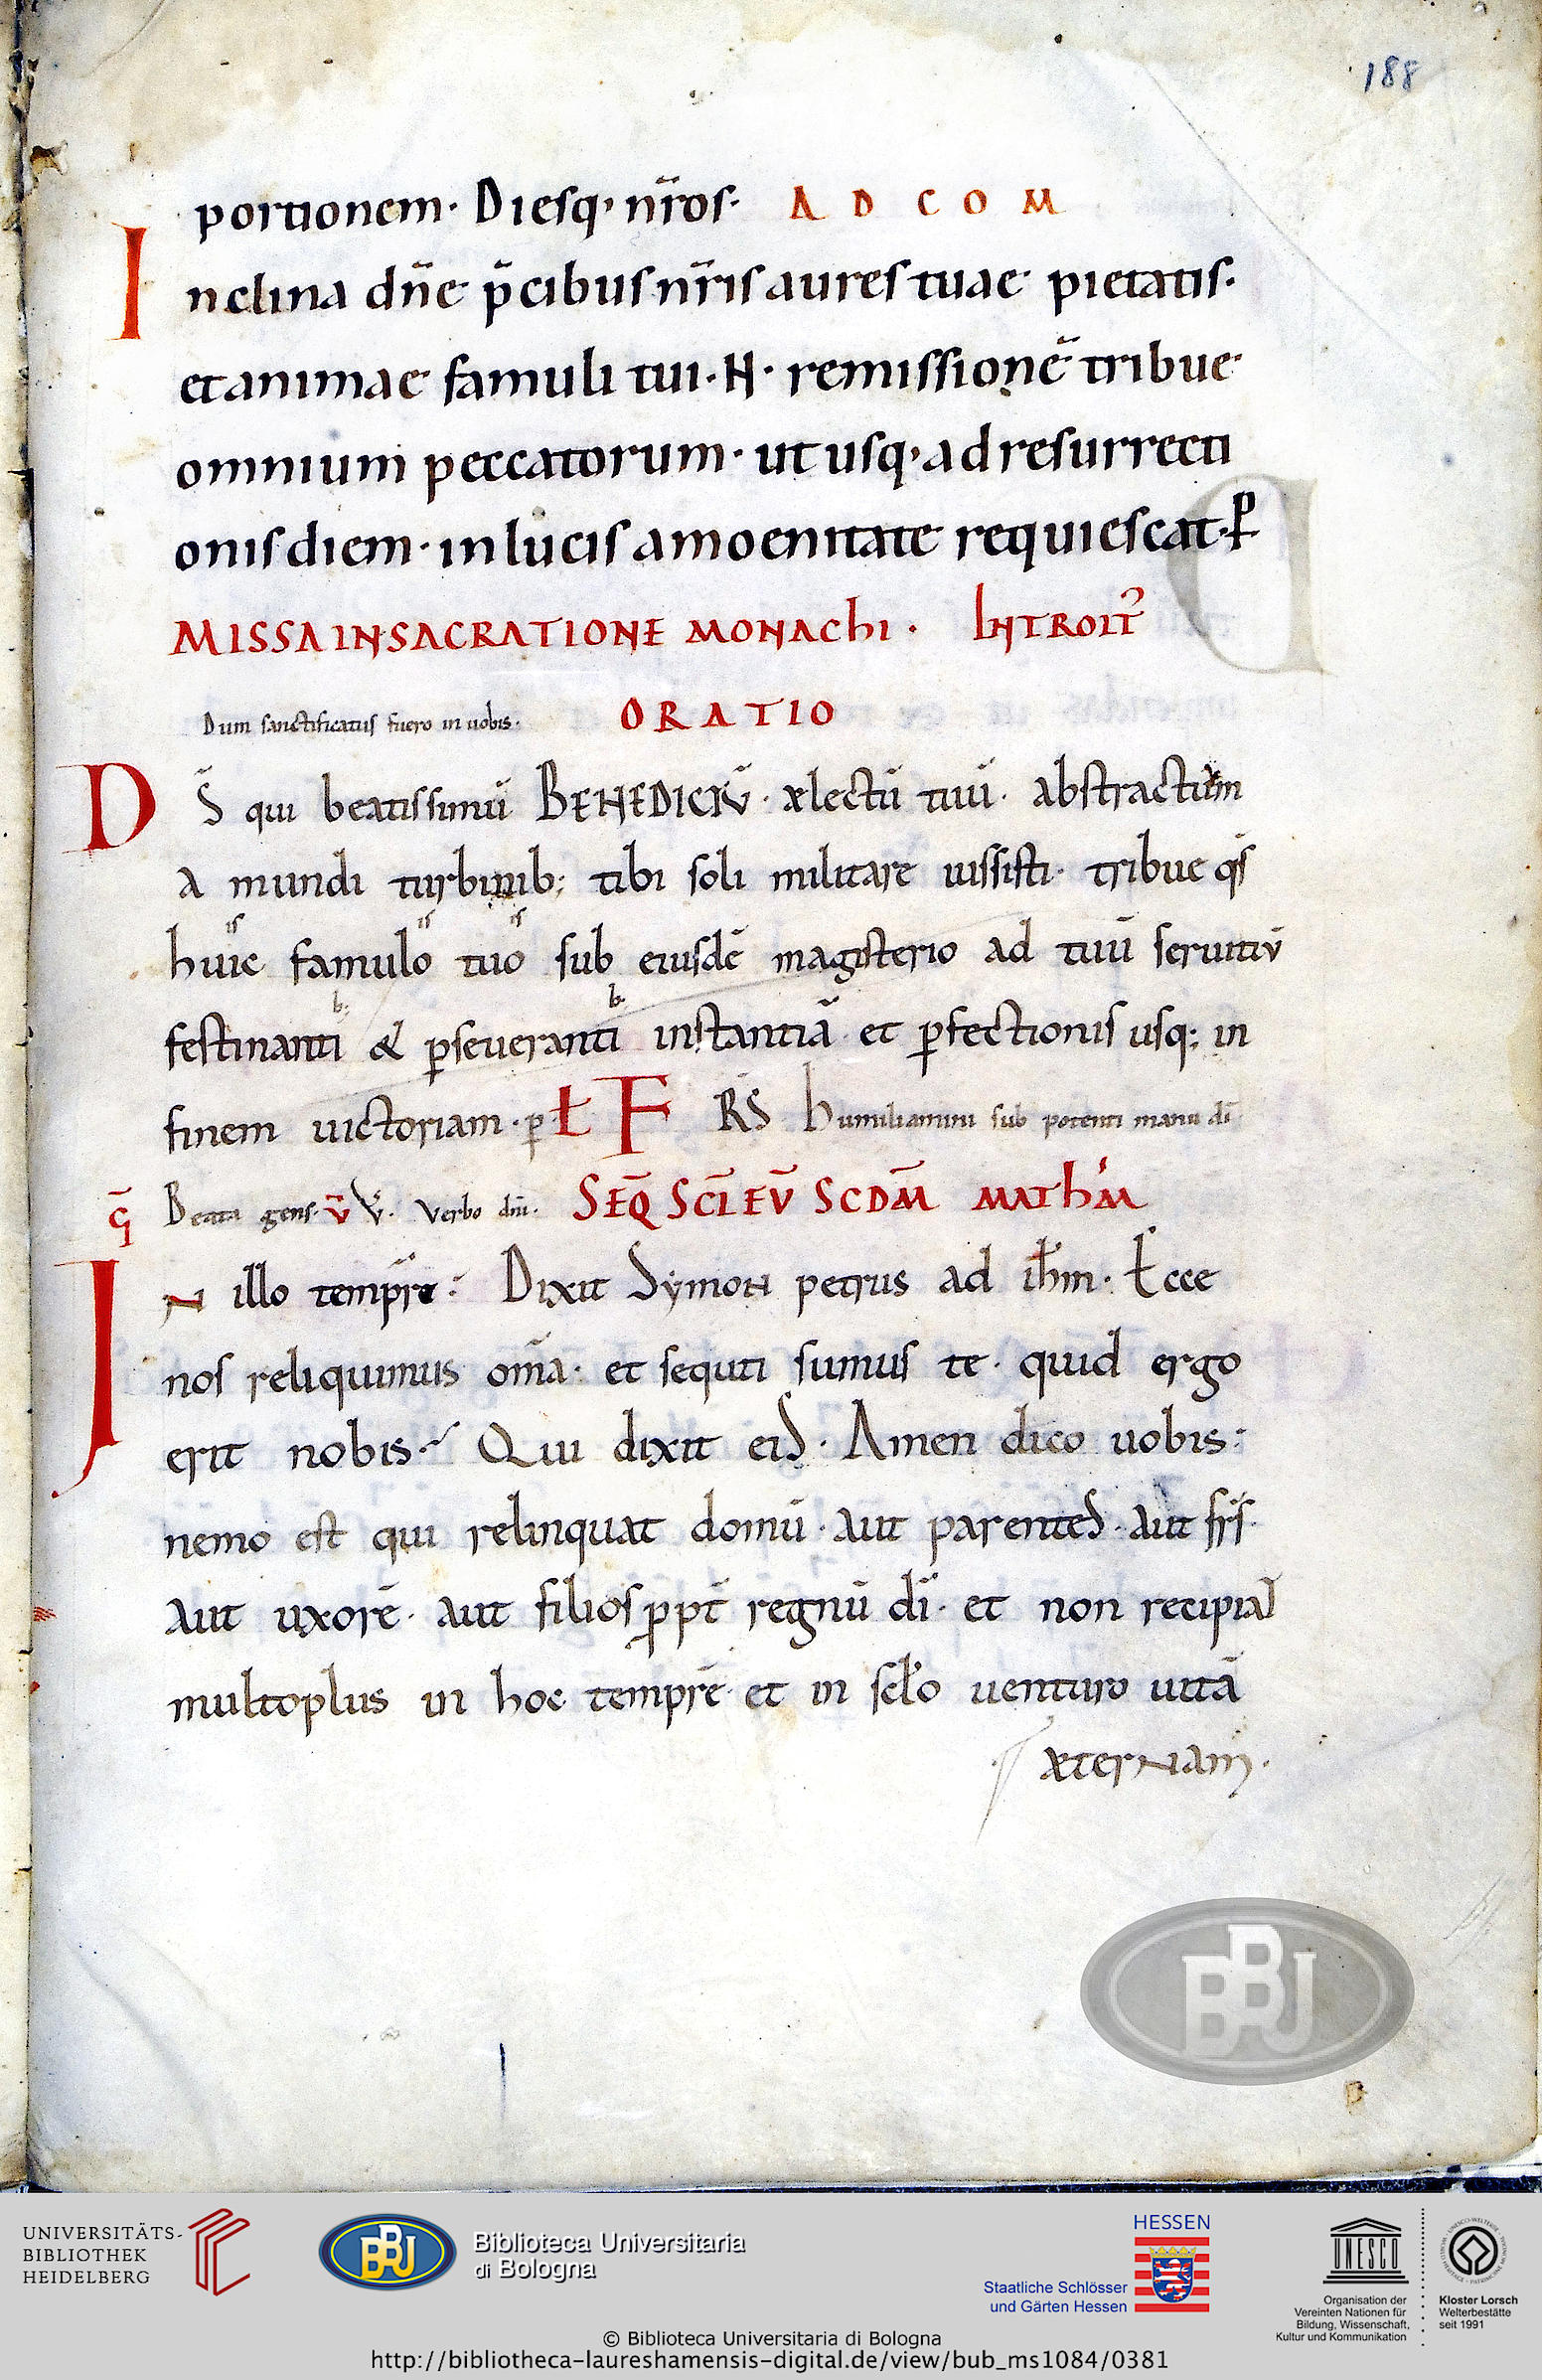 188
portionem· Diesq· nr̄os· AD COM
Inclina dn̄e p̄cibus nr̄is aures tuae pietatis·
et animae famuli tui· N· remissionē tribue
omnium peccatorum· ut usq· ad resurrecti
onis diem· in lucis amoenitate requiescat· P
MISSA IN SACRATIONE MONAchI· INTROIT
Dum sanctificatus fuero in uobis· ORATIO
DS̄ qui beatissimū BENEDICTŪ· electū tuū· abstractum
a mundi turbinib; tibi soli militare iussisti· tribue qs̄
huic famulo tuo sub eiusdē magisterio ad tuū seruitiū
festinanti & pseueranti instantiā et pfectionis usq; in
finem uictoriam· p ł F RS humiliamini sub potenti manu dī
Ḡ Beata gens· v̄ V· Verbo dni· SEQ̄ SCĪ EV̄ SCDM̄ MATh'M
IN illo tempr̄e· Dixit Symon petrus ad ih̄m· Ecce
nos reliquimus om̄a· et sequti sumus te· quid ergo
erit nobis· Qui dixit eis· Amen dico uobis·
nemo est qui relinquat domū· aut parentes· aut frs̄·
aut uxorē· aut filios pptr̄ regnū dī· et non recipiat
multoplus in hoc temprē et in sclo uenturo uitā
æternam·
BBJ
UNIVERSITÄTS-
BIBLIOTHEK
HEIDELBERG
BBJ
Biblioteca Universitaria
di Bologna
HESSEN
Staatliche Schlösser
und Gärten Hessen
UNESCO
Organisation der
Vereinten Nationen für
Bildung, Wissenschaft,
Kultur und Kommunikation
Kloster Lorsch
Welterbestätte
seit 1991
© Biblioteca Universitaria di Bologna
http://bibliotheca-laureshamensis-digital.de/view/bub_ms1084/0381